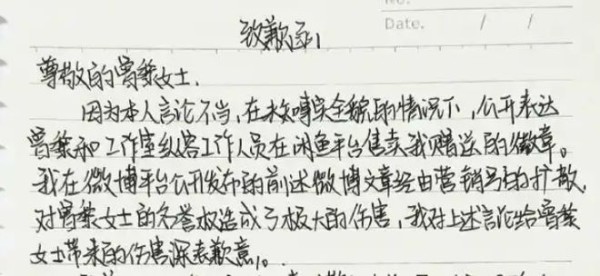 No.
Date. / /
致歉函
尊敬的曾黎女士.
因为本人言论不当,在未知晓实全貌的情况下,公开表达
曾黎和工作室纵容工作人员在闲鱼平台售卖我赠送的徽章。
我在微博平台公开发布的前述微博文章经由营销号的扩散,
对曾黎女士的名誉权造成了极大的伤害,我对上述言论给曾黎
女士带来的伤害深表歉意。